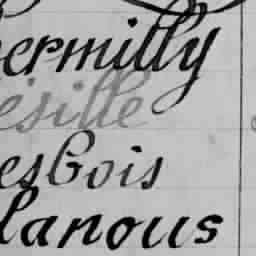 ermilly
esille
esbois
lanous